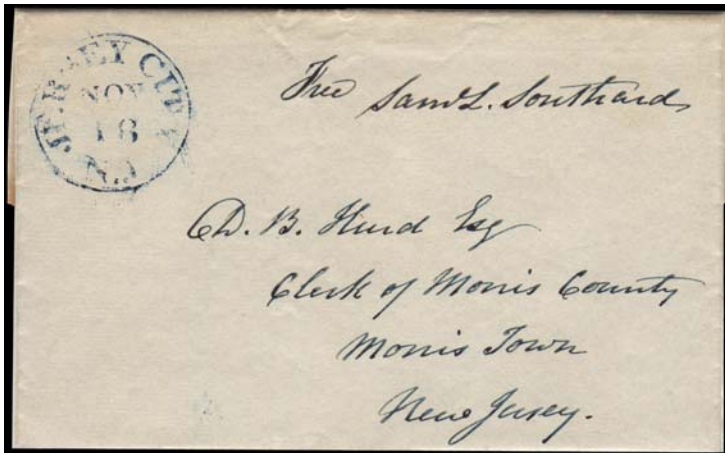 JERSEY CITY
NOV
18
N.J
Free Saml. L. Southard
D. B. Hurd Esq
Clerk of Morris County
Morris Town
New Jersey.